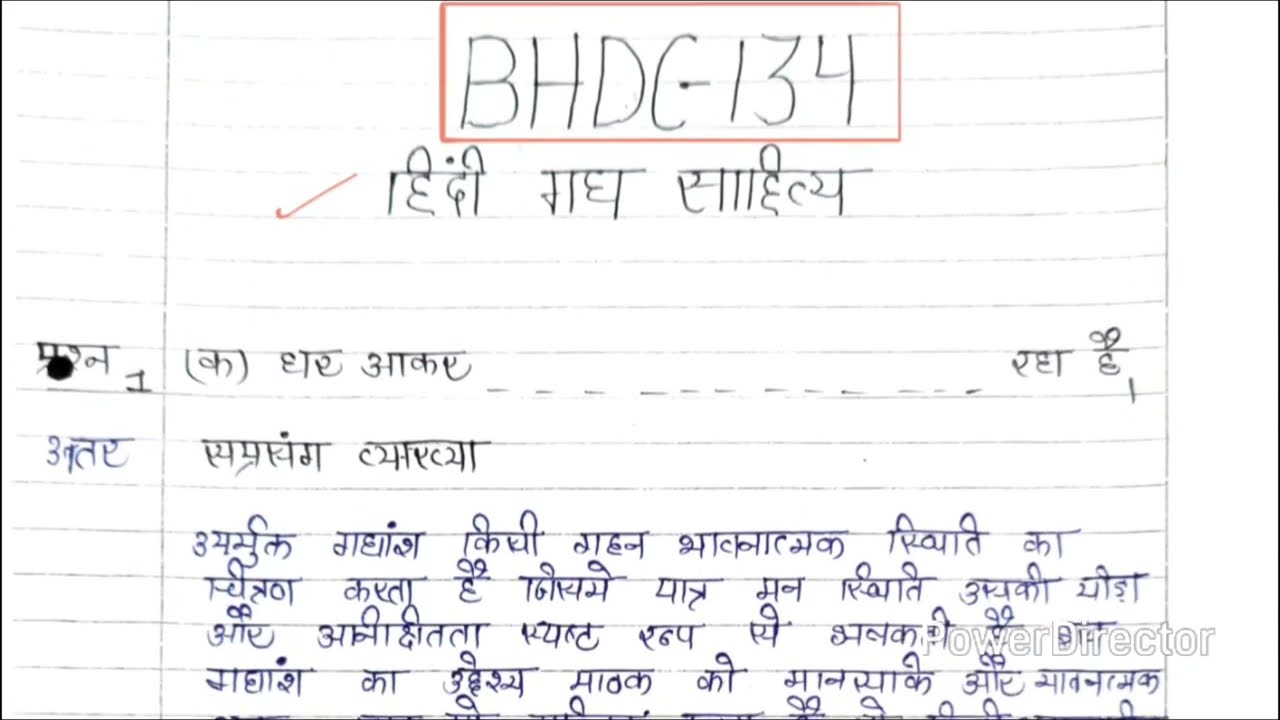 BHDC-134
हिंदी गद्य साहित्य
प्रश्न 1 (क) घर आकर _ _ _ _ _ _ _ _ _ _ _ रहा है।
उत्तर सप्रसंग व्याख्या
उपर्युक्त गद्यांश किसी गहन भावनात्मक स्थिति का
चित्रण करता है जिसमे पात्र मन स्थिति उसकी
और स्पष्ट रूप से
PowerDirector
गद्यांश का उद्देश्य पाठक को मानसिक और भावनात्मक